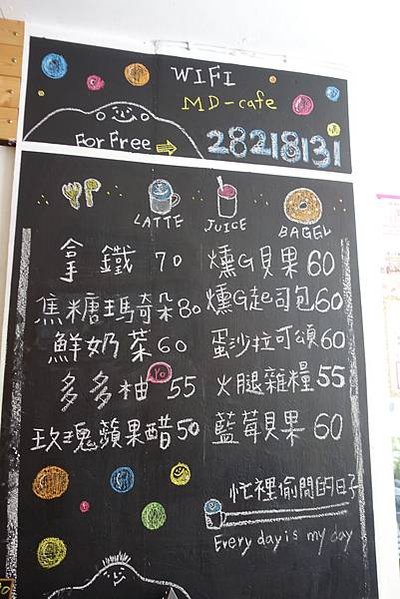 WIFI
MD-cafe
For Free 28218131
LATTE JUICE BAGEL
拿鐵 70
焦糖瑪奇朵 80
鮮奶茶 60
多多柚 Yo 55
玫瑰蘋果醋 50
燻G貝果 60
燻G起司包 60
蛋沙拉可頌 60
火腿雜糧 55
藍莓貝果 60
忙裡偷閒的日子
Every day is my day